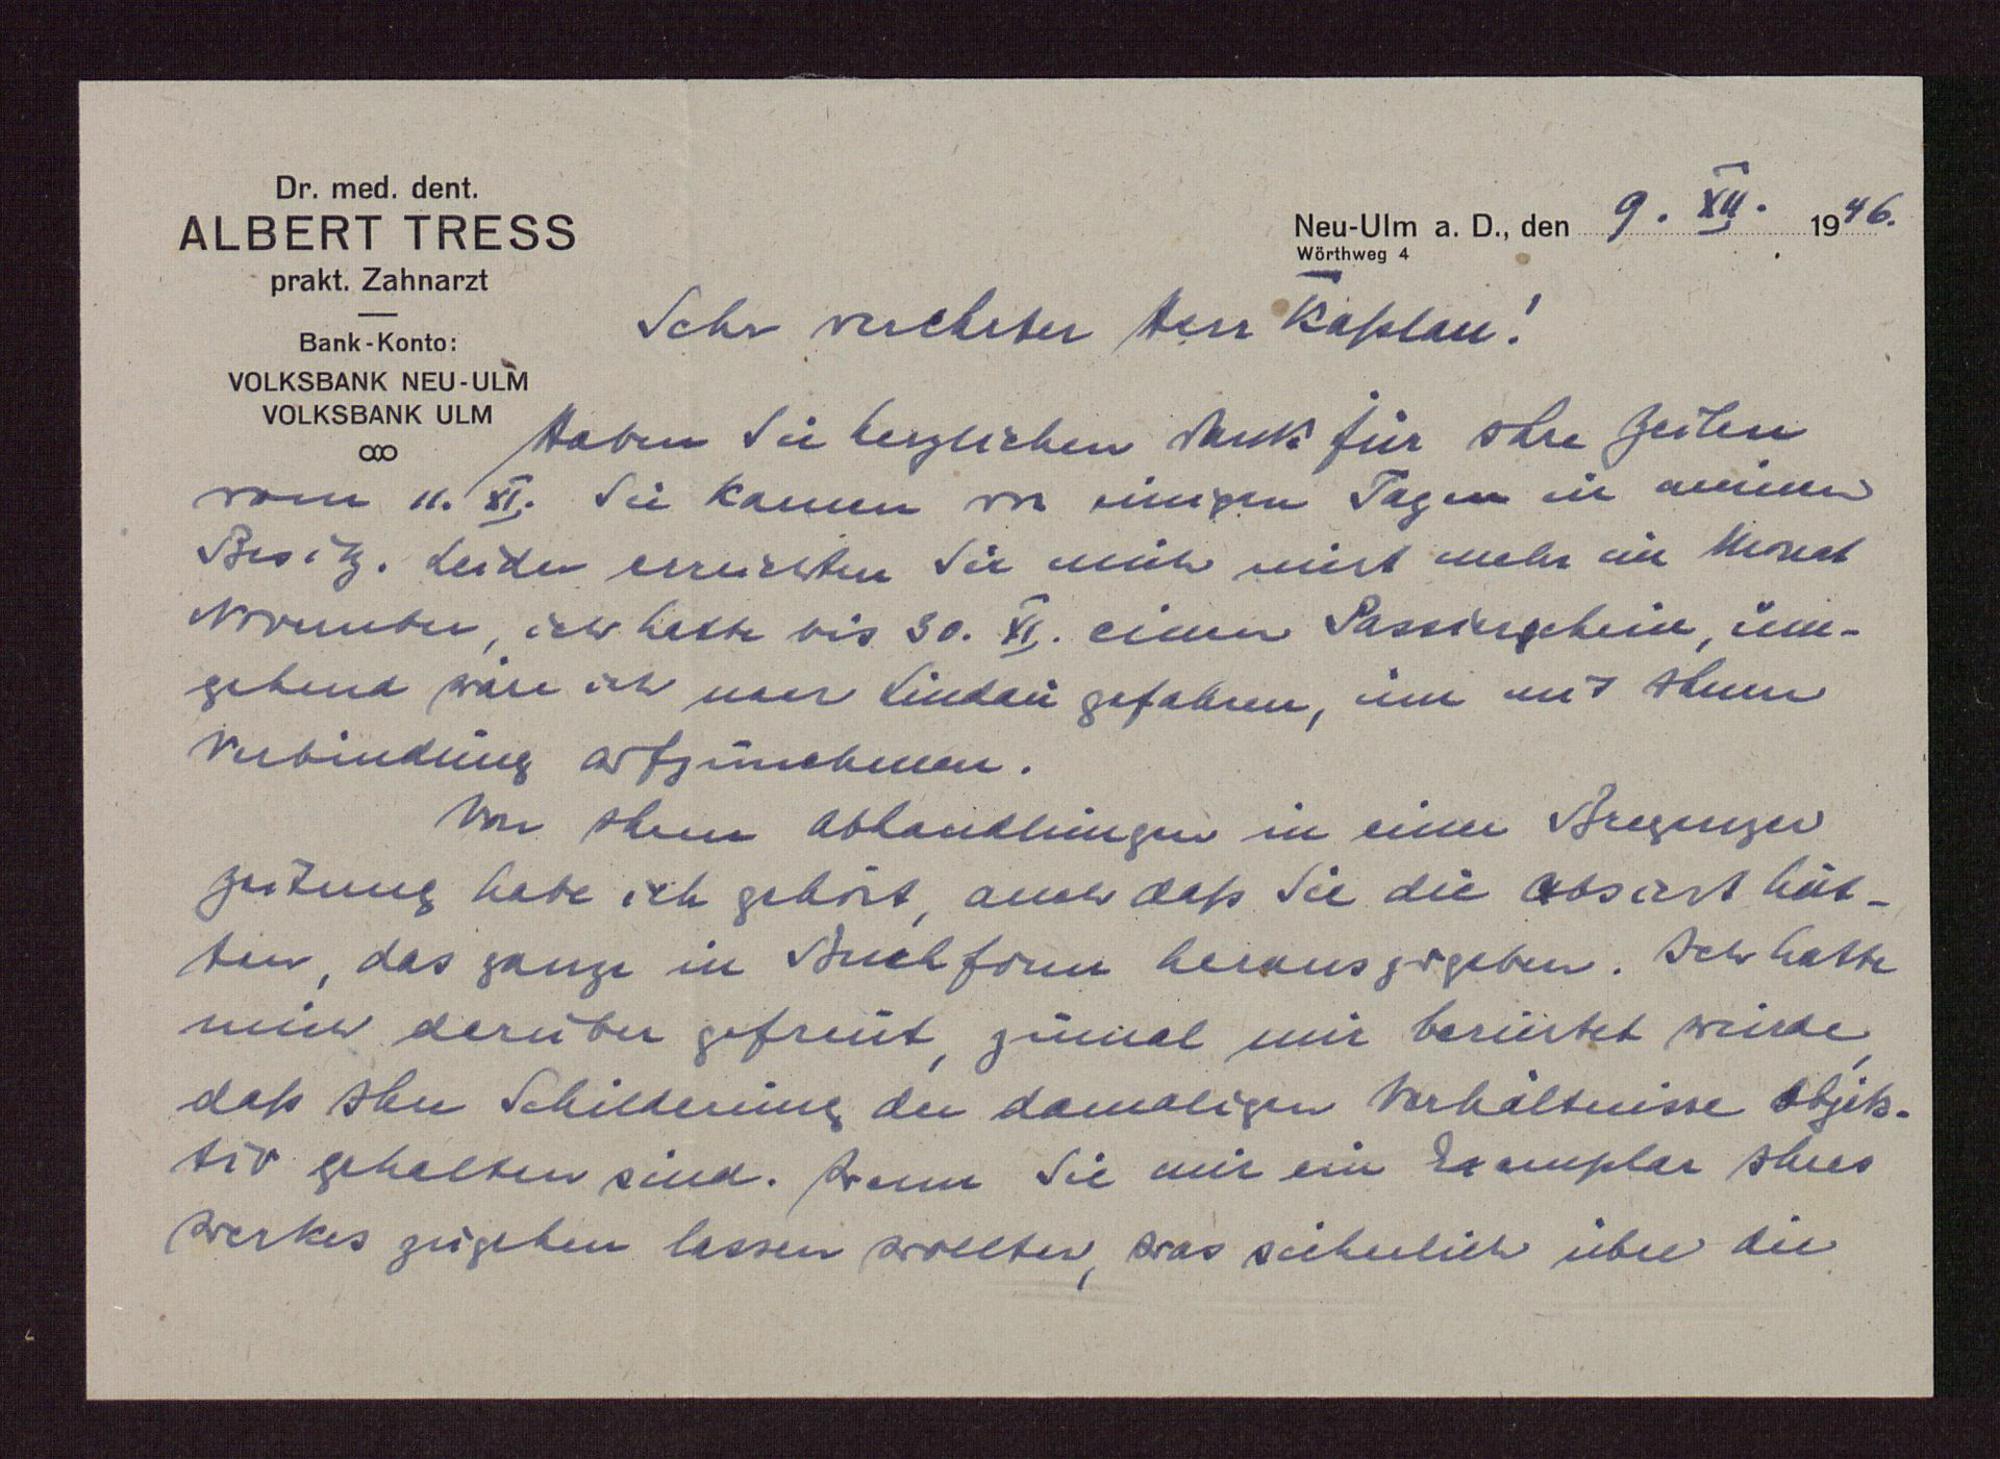 Dr. med. dent.
ALBERT TRESS
prakt. Zahnarzt
Bank-Konto:
VOLKSBANK NEU-ULM
VOLKSBANK ULM
Neu-Ulm a. D., den 9. XII. 1946.
Wörthweg 4
Sehr verehrter Herr Kaplan!
Haben Sie herzlichen Dank für Ihre Zeilen
vom 11. XI. Sie kamen vor einigen Tagen in meinen
Besitz. Leider erreichten Sie mich nicht mehr im Monat
November, ich hatte bis 30. XI. einen Passierschein, um-
gehend wäre ich nach Lindau gefahren, um mit Ihnen
Verbindung aufzunehmen.
Von Ihren Abhandlungen in einer Bregenzer
Zeitung habe ich gehört, auch daß Sie die Absicht hät-
ten, das ganze in Buchform herauszugeben. Ich hatte
mich darüber gefreut, zumal mir berichtet wurde,
daß Ihre Schilderung der damaligen Verhältnisse objek-
tiv gehalten sind. Wenn Sie mir ein Exemplar Ihres
Werkes zugehen lassen wollten, was sicherlich über die